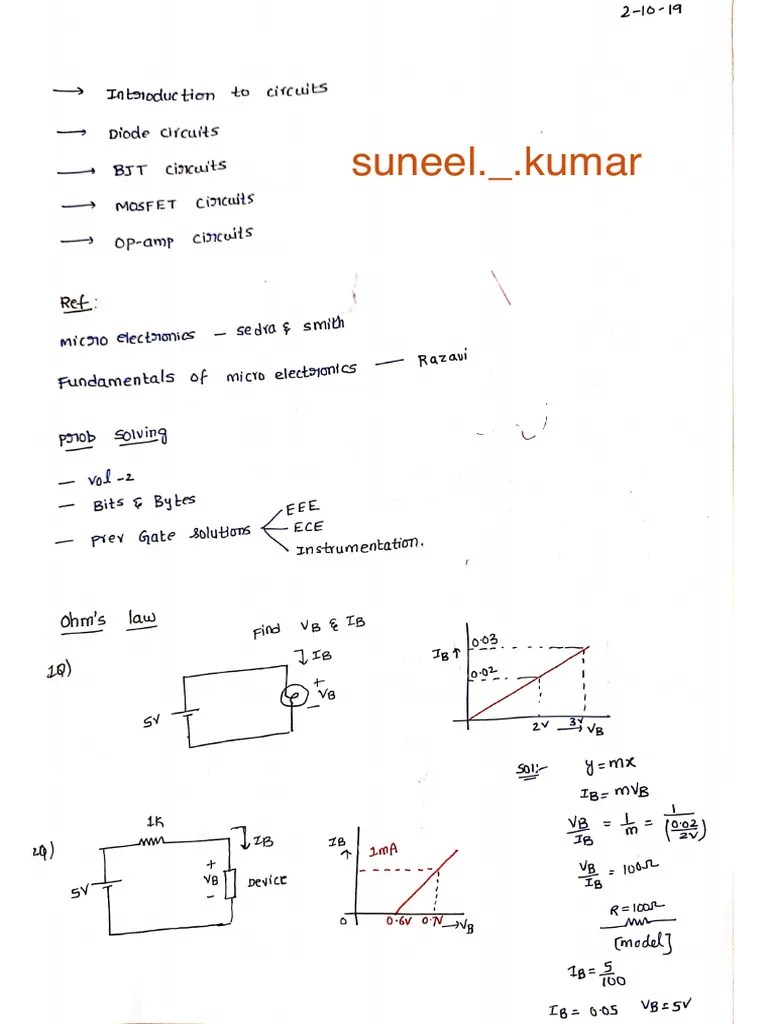 2-10-19
→ Introduction to circuits
→ Diode circuits
→ BJT circuits
→ MOSFET circuits
→ Op-amp circuits
suneel._.kumar
Ref:
micro electronics — sedra & smith
Fundamentals of micro electronics — Razavi
prob solving
— Vol-2
— Bits & Bytes
— Prev Gate solutions
EEE
ECE
Instrumentation.
Ohm's law
1Q)
Find VB & IB
↓ IB
5V
+
VB
−
IB ↑
0.03
0.02
2V 3V
→ VB
Sol:-
y = mx
IB = mVB
VB/IB = 1/m = 1/(0.02/2V)
VB/IB = 100Ω
R = 100Ω
[model]
IB = 5/100
IB = 0.05 VB = 5V
2Q)
1K
↓ IB
5V
+
VB
−
Device
IB ↑
1mA
0 0.6V 0.7V → VB